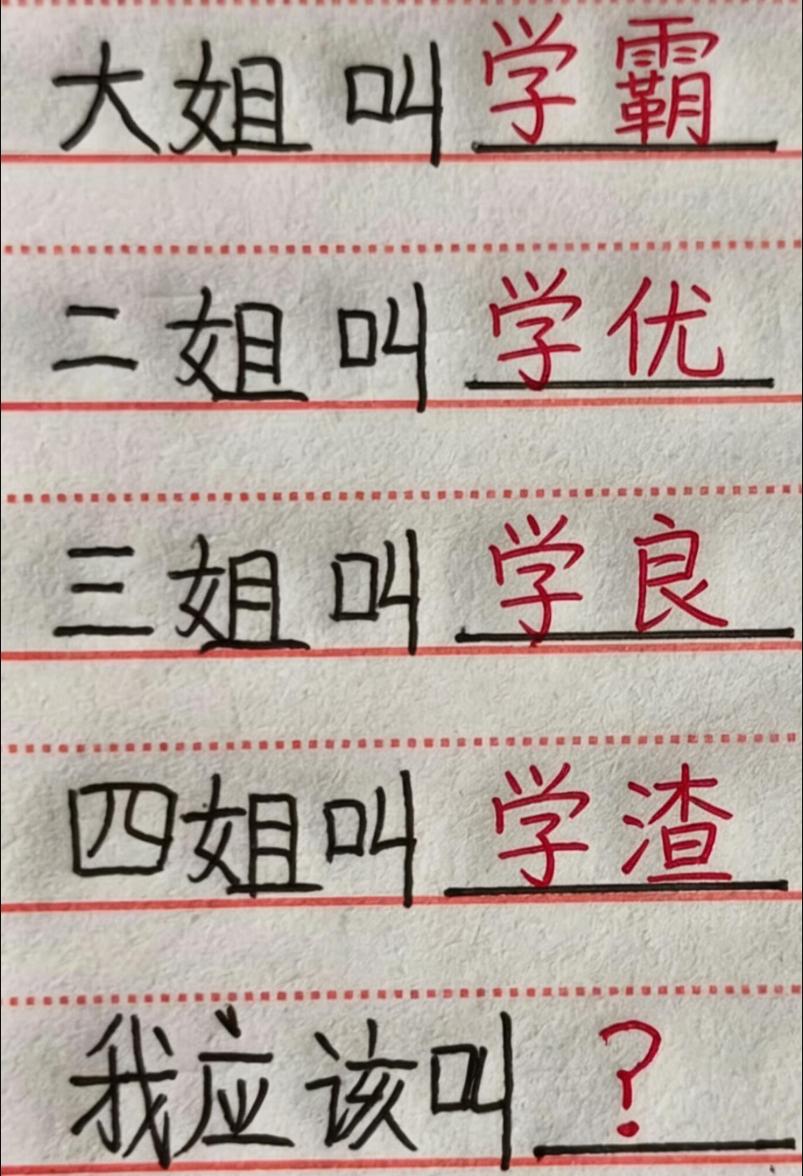 大姐叫学霸
二姐叫学优
三姐叫学良
四姐叫学渣
我应该叫？